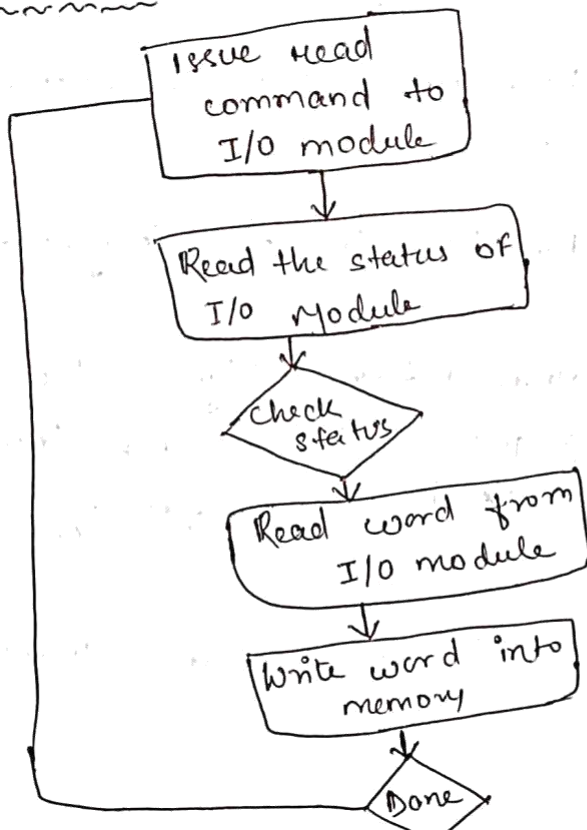 Issue read
command to
I/O module
Read the status of
I/O Module
Check
status
Read word from
I/O module
Write word into
memory
Done